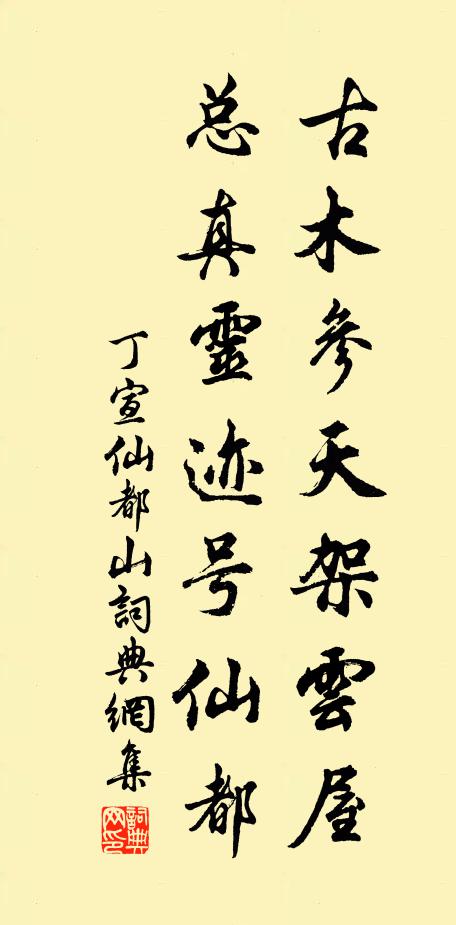 古木參天架雲屋
总真靈迹号仙都
丁宣仙都山詞典網集
詞典网印